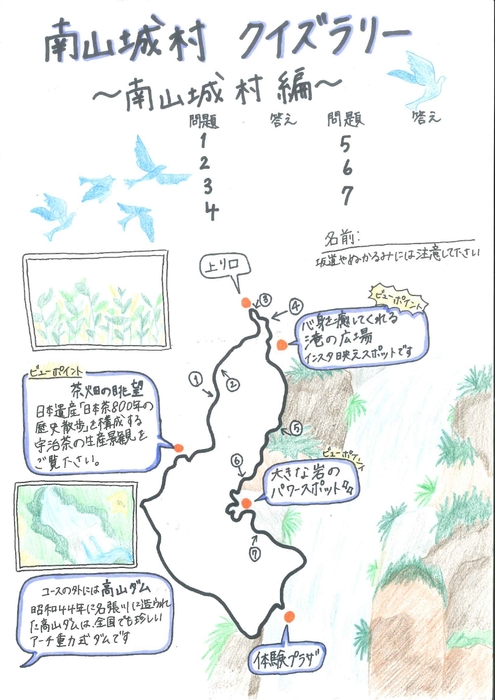 南山城村 クイズラリー
～南山城村編～
問題 答え 問題 答え
1 5
2 6
3 7
4
名前:
坂道やぬかるみには注意して下さい
上り口
③
④
ビューポイント
心身を癒してくれる
滝の広場
インスタ映えスポットです
ビューポイント
茶畑の眺望
日本遺産「日本茶800年の
歴史散歩」を構成する
宇治茶の生産景観を
ご覧ください。
①
②
⑤
⑥
ビューポイント
大きな岩の
パワースポット
⑦
コースの外には高山ダム
昭和44年に名張川に造られ
た高山ダムは、全国でも珍しい
アーチ重力式ダムです
体験プラザ